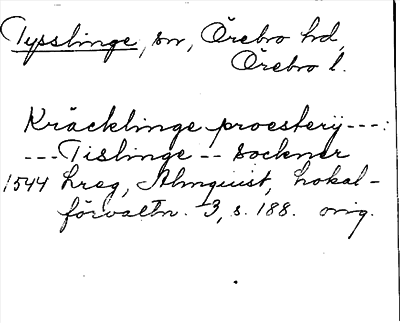 Tysslinge, sn, Örebro hd,
Örebro l.
Kräcklinge proesterij---:
--- Tislinge -- sockner
1544 hreg, Almquist, Lokal-
förvaltn. 3, s. 188. orig.